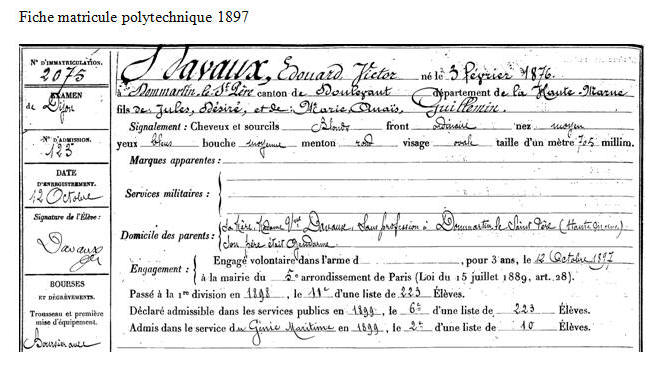 Fiche matricule polytechnique 1897
N° D'IMMATRICULATION.
2075
EXAMEN
de Dijon
N° D'ADMISSION.
123
DATE
D'ENREGISTREMENT.
12 Octobre
Signature de l'Élève :
Davaux
BOURSES
ET DÉGRÈVEMENTS.
Trousseau et première
mise d'équipement.
Boursier avec
Davaux, Edouard Victor né le 3 février 1876
à Dommartin le St Père canton de Doulevant département de la Haute-Marne
fils de Jules, Désiré, et de : Marie Anaïs, Guillemin.
Signalement : Cheveux et sourcils Blonds front ordinaire nez moyen
yeux bleus bouche moyenne menton rond visage ovale taille d'un mètre 705 millim.
Marques apparentes :
Services militaires :
Domicile des parents : La Mère, Madame Vve Davaux, Sans profession à Dommartin le Saint Père (Haute Marne)
Son père était Gendarme.
Engagement : Engagé volontaire dans l'arme d , pour 3 ans, le 12 Octobre 1897
à la mairie du 5e arrondissement de Paris (Loi du 15 juillet 1889, art. 28).
Passé à la 1re division en 1898, le 11e d'une liste de 223 Élèves.
Déclaré admissible dans les services publics en 1899, le 6e d'une liste de 223 Élèves.
Admis dans le service du Génie Maritime en 1899, le 2e d'une liste de 10 Élèves.